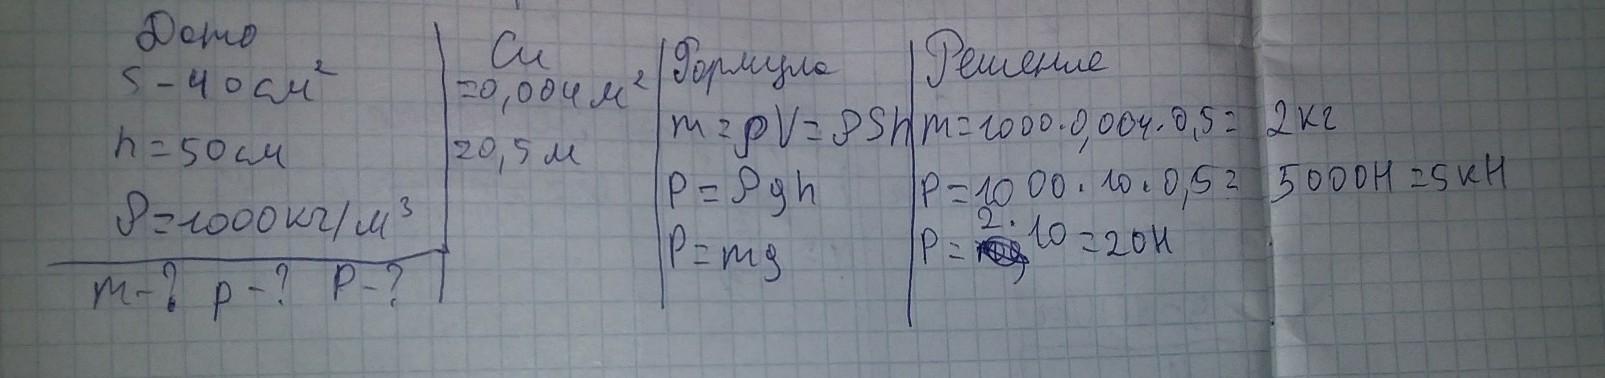 Дано
S - 40 см²
h = 50 см
ρ = 1000 кг/м³
m - ? p - ? P - ?
Си
= 0,004 м²
= 0,5 м
Формула
m = ρV = ρSh
p = ρgh
P = mg
Решение
m = 1000 · 0,004 · 0,5 = 2 кг
p = 1000 · 10 · 0,5 = 5000 Н = 5 кН
P = 2 · 10 = 20 Н